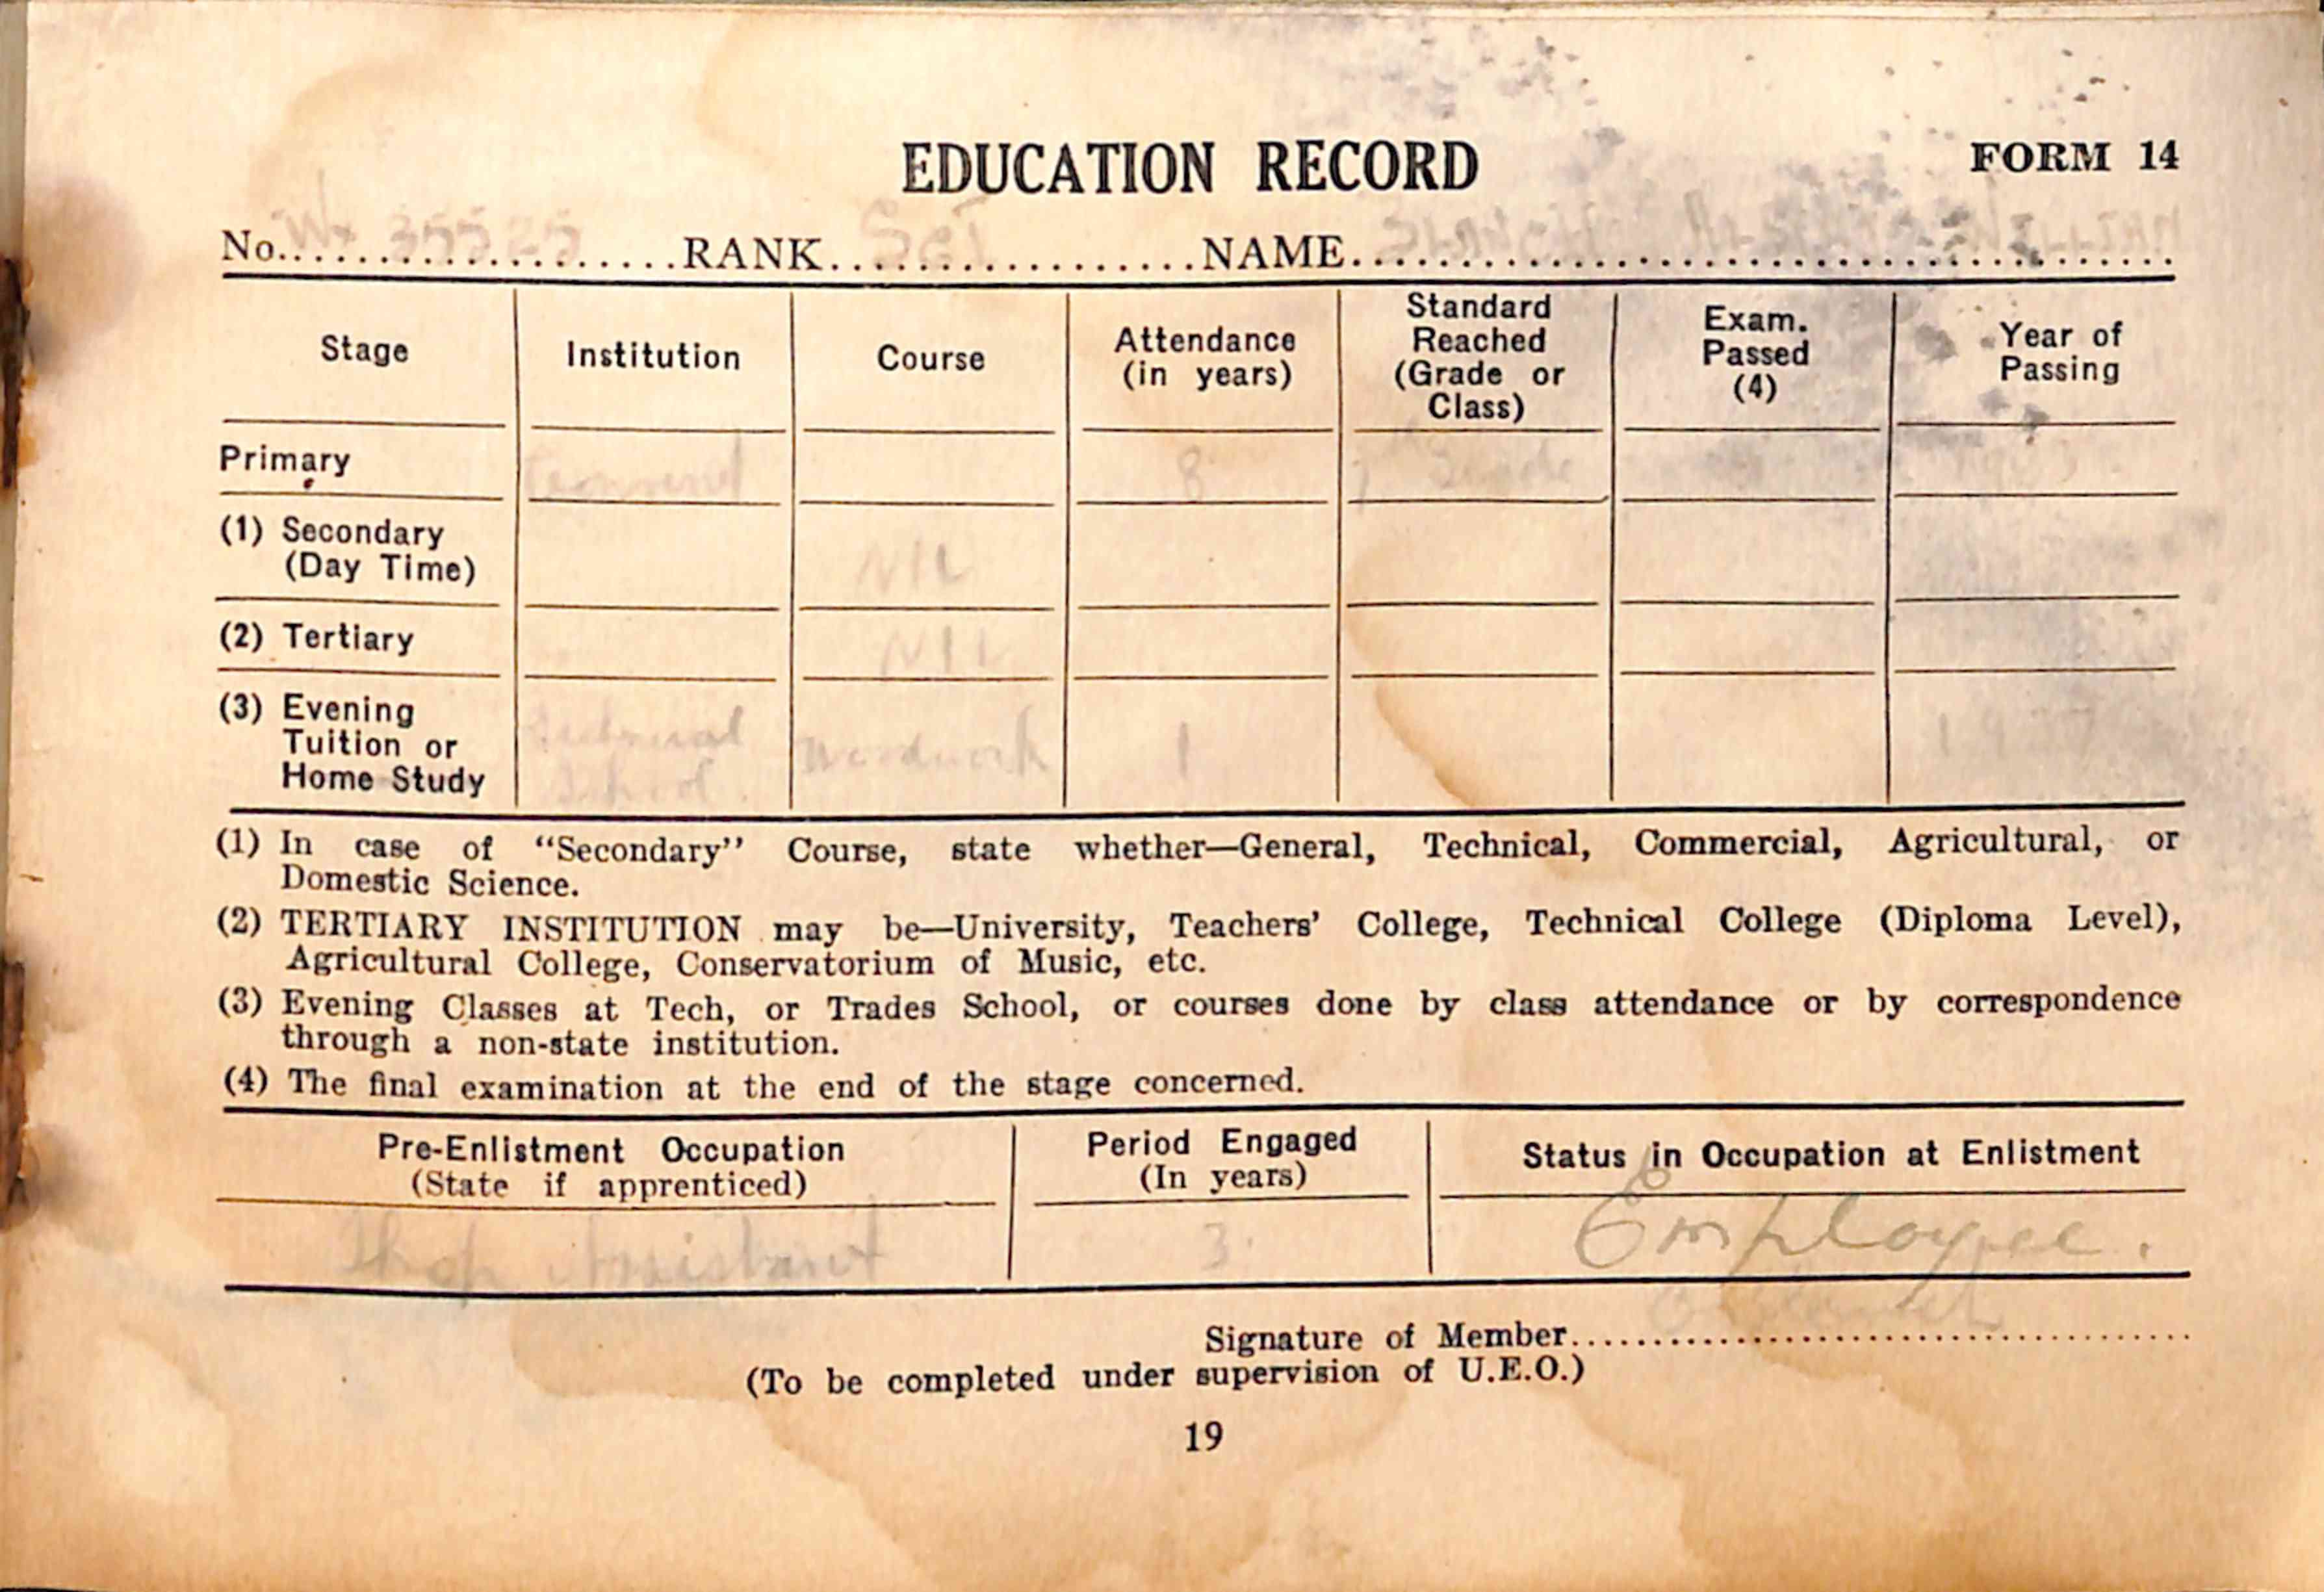 EDUCATION RECORD
FORM 14
No.....................RANK...................NAME..........................................
Stage
Institution
Course
Attendance
(in years)
Standard
Reached
(Grade or
Class)
Exam.
Passed
(4)
Year of
Passing
Primary
8
Grade
(1) Secondary
(Day Time)
NIL
(2) Tertiary
NIL
(3) Evening
Tuition or
Home Study
Technical
School.
Woodwork
1
(1) In case of “Secondary” Course, state whether—General, Technical, Commercial, Agricultural, or
Domestic Science.
(2) TERTIARY INSTITUTION may be—University, Teachers’ College, Technical College (Diploma Level),
Agricultural College, Conservatorium of Music, etc.
(3) Evening Classes at Tech, or Trades School, or courses done by class attendance or by correspondence
through a non-state institution.
(4) The final examination at the end of the stage concerned.
Pre-Enlistment Occupation
(State if apprenticed)
Period Engaged
(In years)
Status in Occupation at Enlistment
Shop Assistant
3
Employee.
Signature of Member......................................
(To be completed under supervision of U.E.O.)
19